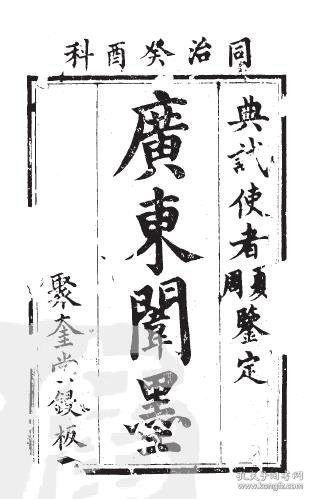 同治癸酉科
典試使者夏周鑒定
廣東闈墨
聚奎堂鋟板
孔夫子旧书网